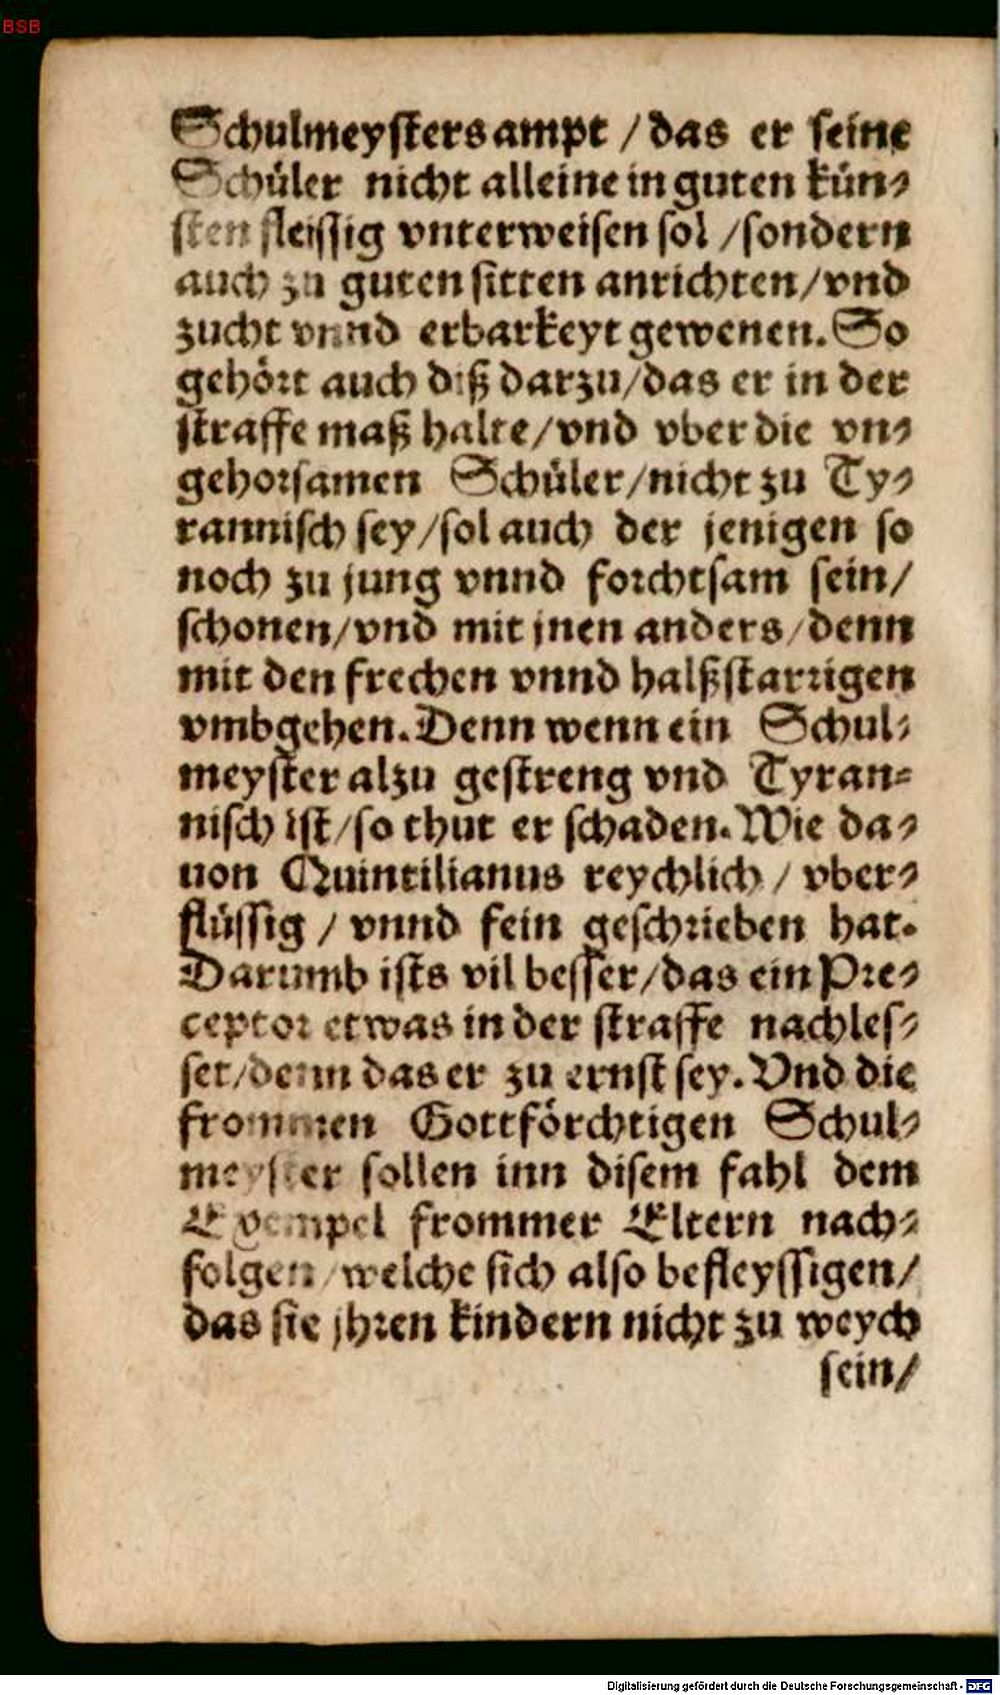 BSB
Schulmeysters ampt / das er seine
Schüler nicht alleine in guten kün⸗
sten fleissig vnterweisen sol / sondern
auch zu guten sitten anrichten / vnd
zucht vnnd erbarkeyt gewenen. So
gehört auch diß darzu / das er in der
straffe maß halte / vnd vber die vn⸗
gehorsamen Schüler / nicht zu Ty⸗
rannisch sey / sol auch der jenigen so
noch zu jung vnnd forchtsam sein /
schonen / vnd mit jnen anders / denn
mit den frechen vnnd halßstarrigen
vmbgehen. Denn wenn ein Schul⸗
meyster alzu gestreng vnd Tyran⸗
nisch ist / so thut er schaden. Wie da⸗
uon Quintilianus reychlich / vber⸗
flüssig / vnnd fein geschrieben hat.
Darumb ists vil besser / das ein Pre⸗
ceptor etwas in der straffe nachles⸗
set / denn das er zu ernst sey. Vnd die
frommen Gottförchtigen Schul⸗
meyster sollen inn disem fahl dem
Exempel frommer Eltern nach⸗
folgen / welche sich also befleyssigen /
das sie jhren kindern nicht zu weych
sein /
Digitalisierung gefördert durch die Deutsche Forschungsgemeinschaft - DFG